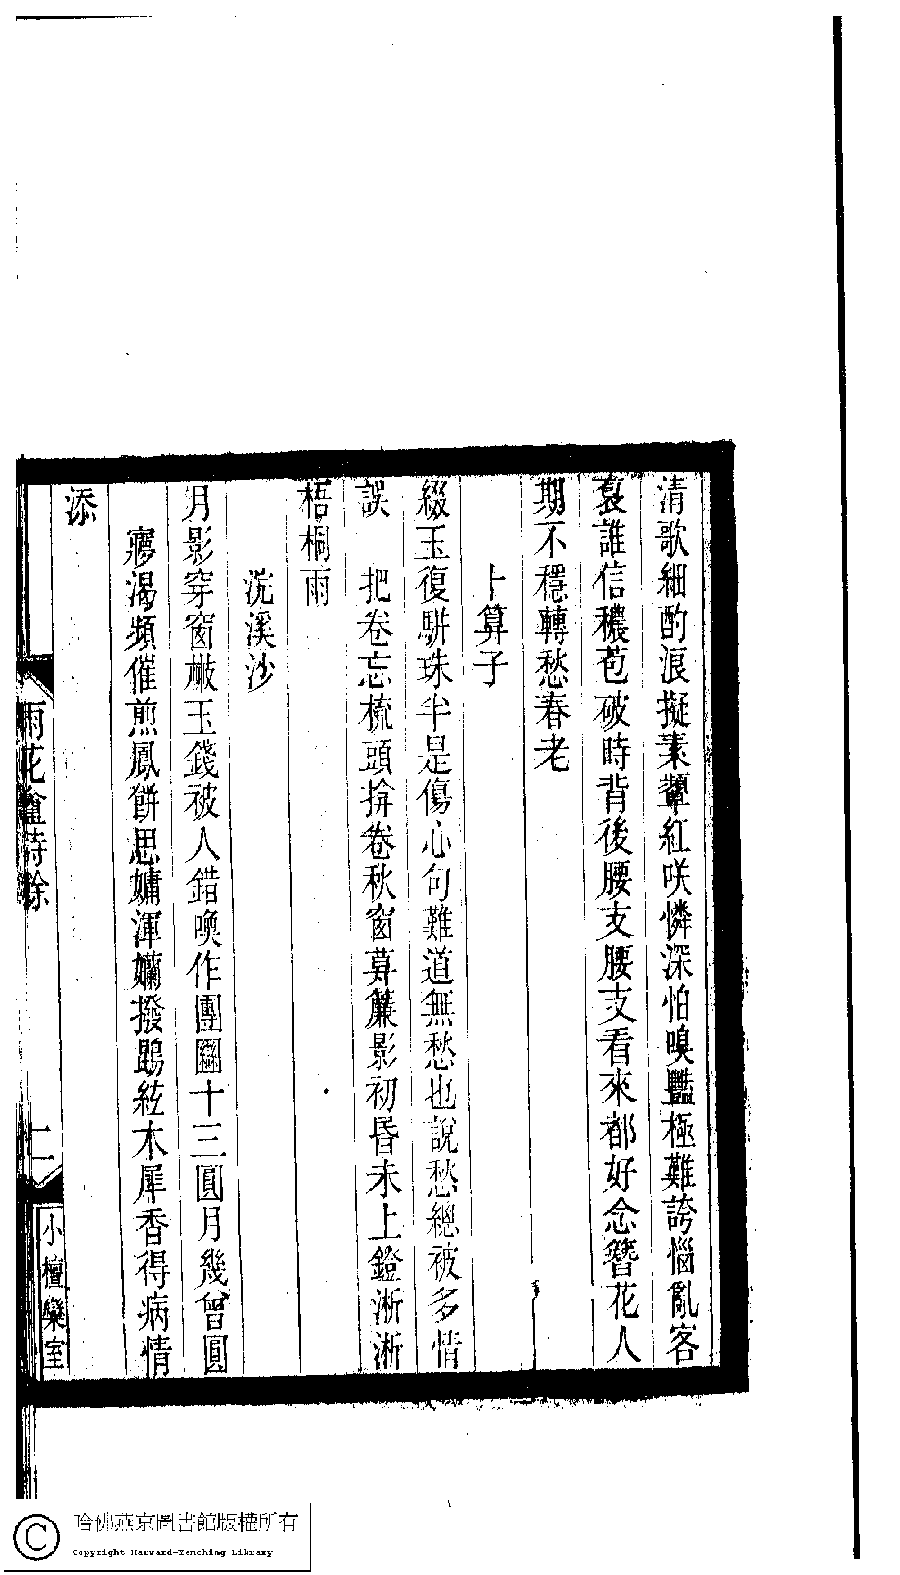 清歌細酌浪擬素顰紅咲憐深怕嗅豔極難誇惱亂客
裏誰信穠苞破時背後腰支腰支看來都好念簪花人
期不穩轉愁春老
卜算子
綴玉復駢珠半是傷心句難道無愁也說愁總被多情
誤　把卷忘梳頭拚卷秋窗幕簾影初昏未上鐙淅淅
梧桐雨
浣溪沙
月影穿窗楸玉錢被人錯喚作團圞十三圓月幾曾圓
　寱渴頻催煎鳳餅思慵渾嬾撥鵾絃木犀香得病情
添
雨花盦詩餘
二
小檀欒室
哈佛燕京圖書館版權所有
Copyright Harvard-Yenching Library